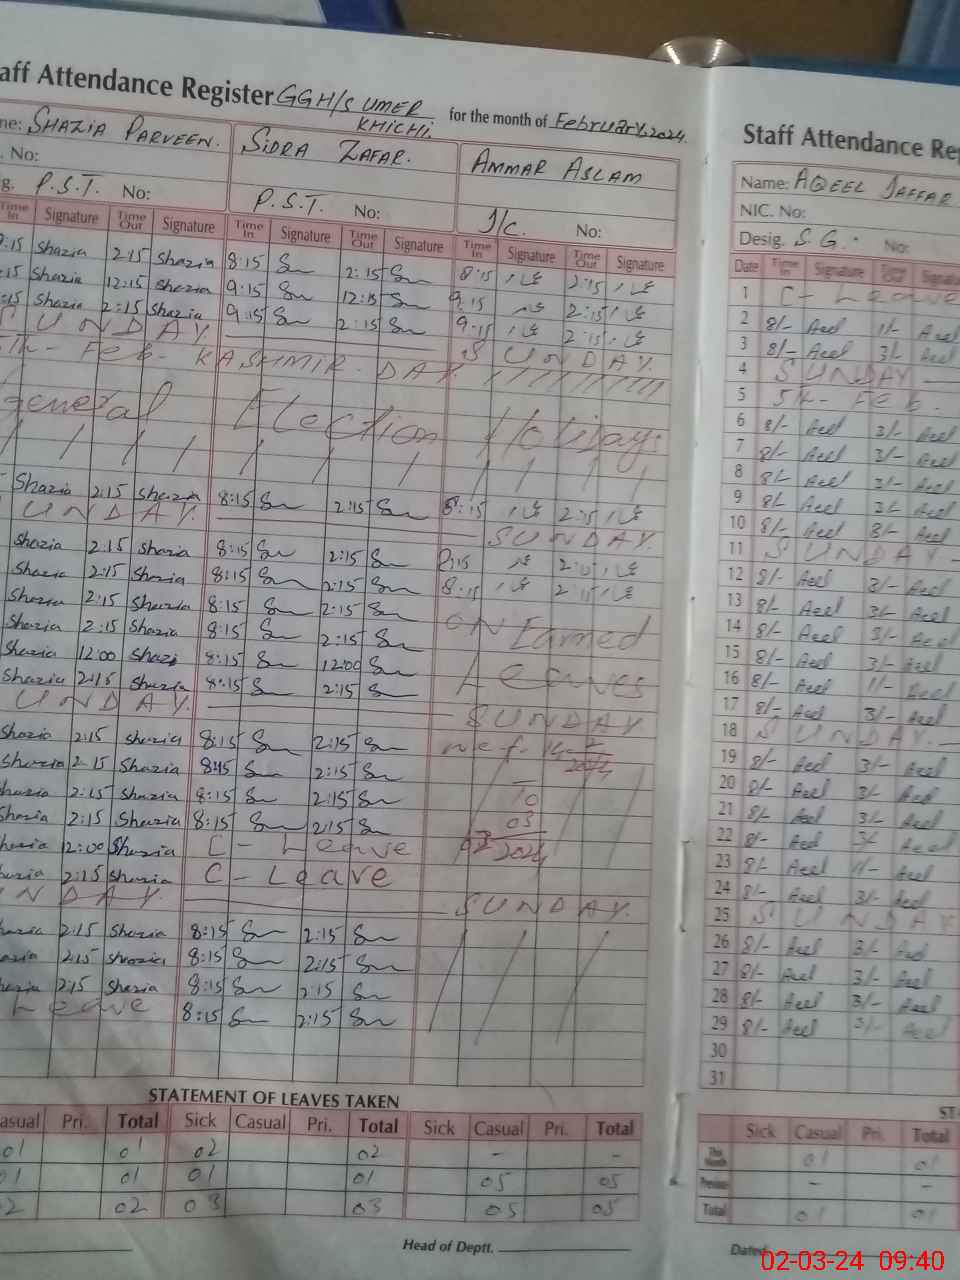 aff Attendance Register GGH/S UMER KHICHI. for the month of February, 2024
ne: SHAZIA PARVEEN. SIDRA ZAFAR. AMMAR ASLAM
. No:
g. P.S.T. No: P.S.T. No: J/C. No:
Time In Signature Time Out Signature Time In Signature Time Out Signature Time In Signature Time Out Signature
:15 Shazia 2:15 Shazia 8:15 2:15 8:15 2:15
:15 Shazia 12:15 Shazia 9:15 12:15 9:15 2:15
:15 Shazia 2:15 Shazia 9:15 2:15 9:15 2:15
SUNDAY. SUNDAY.
5th - Feb - KASHMIR DAY
general Election Holiday.
Shazia 2:15 Shazia 8:15 2:15 8:15 2:15
UNDAY. SUNDAY.
Shazia 2:15 Shazia 8:15 2:15 8:15 2:15
Shazia 2:15 Shazia 8:15 2:15 8:15 2:15
Shazia 2:15 Shazia 8:15 2:15 ON Earned
Shazia 2:15 Shazia 8:15 2:15
Shazia 12:00 Shazi 8:15 12:00 Leaves
Shazia 2:15 Shazia 8:15 2:15
UNDAY. SUNDAY.
Shazia 2:15 Shazia 8:15 2:15 w.e.f.
Shazia 2:15 Shazia 8:15 2:15 2024
hazia 2:15 Shazia 8:15 2:15 10
Shazia 2:15 Shazia 8:15 2:15 03
hazia 12:00 Shazia C - Leave 2024
hazia 2:15 Shazia C - Leave
NDAY. SUNDAY.
hazia 2:15 Shazia 8:15 2:15
hazia 2:15 Shazia 8:15 2:15
hazia 2:15 Shazia 8:15 2:15
Leave 8:15 2:15
STATEMENT OF LEAVES TAKEN
asual Pri. Total Sick Casual Pri. Total Sick Casual Pri. Total
01 01 02 02 - -
01 01 01 01 05 05
02 02 03 03 05 05
Head of Deptt.
Staff Attendance Reg
Name: AQEEL JAFFAR
NIC. No:
Desig. S.G. No:
Date Time In Signature Signatu
1 C - Leave
2 8/- Aeel 11/- Aeel
3 8/- Aeel 3/- Aeel
4 SUNDAY
5 5th - Feb.
6 8/- Aeel 3/- Aeel
7 8/- Aeel 3/- Aeel
8 8/- Aeel 3/- Aeel
9 8/- Aeel 3/- Aeel
10 8/- Aeel 3/- Aeel
11 SUNDAY
12 8/- Aeel 3/- Aeel
13 8/- Aeel 3/- Aeel
14 8/- Aeel 3/- Aeel
15 8/- Aeel 3/- Aeel
16 8/- Aeel 11/- Aeel
17 8/- Aeel 3/- Aeel
18 SUNDAY
19 8/- Aeel 3/- Aeel
20 8/- Aeel 3/- Aeel
21 8/- Aeel 3/- Aeel
22 8/- Aeel 3/- Aeel
23 8/- Aeel 11/- Aeel
24 8/- Aeel 3/- Aeel
25 SUNDAY
26 8/- Aeel 3/- Aeel
27 8/- Aeel 3/- Aeel
28 8/- Aeel 3/- Aeel
29 8/- Aeel 3/- Aeel
30
31
ST
Sick Casual Pri. Total
This Month 01 01
Previous - -
Total 01 01
Dated
02-03-24 09:40